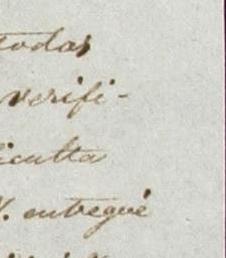 todas
verifi-
icutta
V. entregué